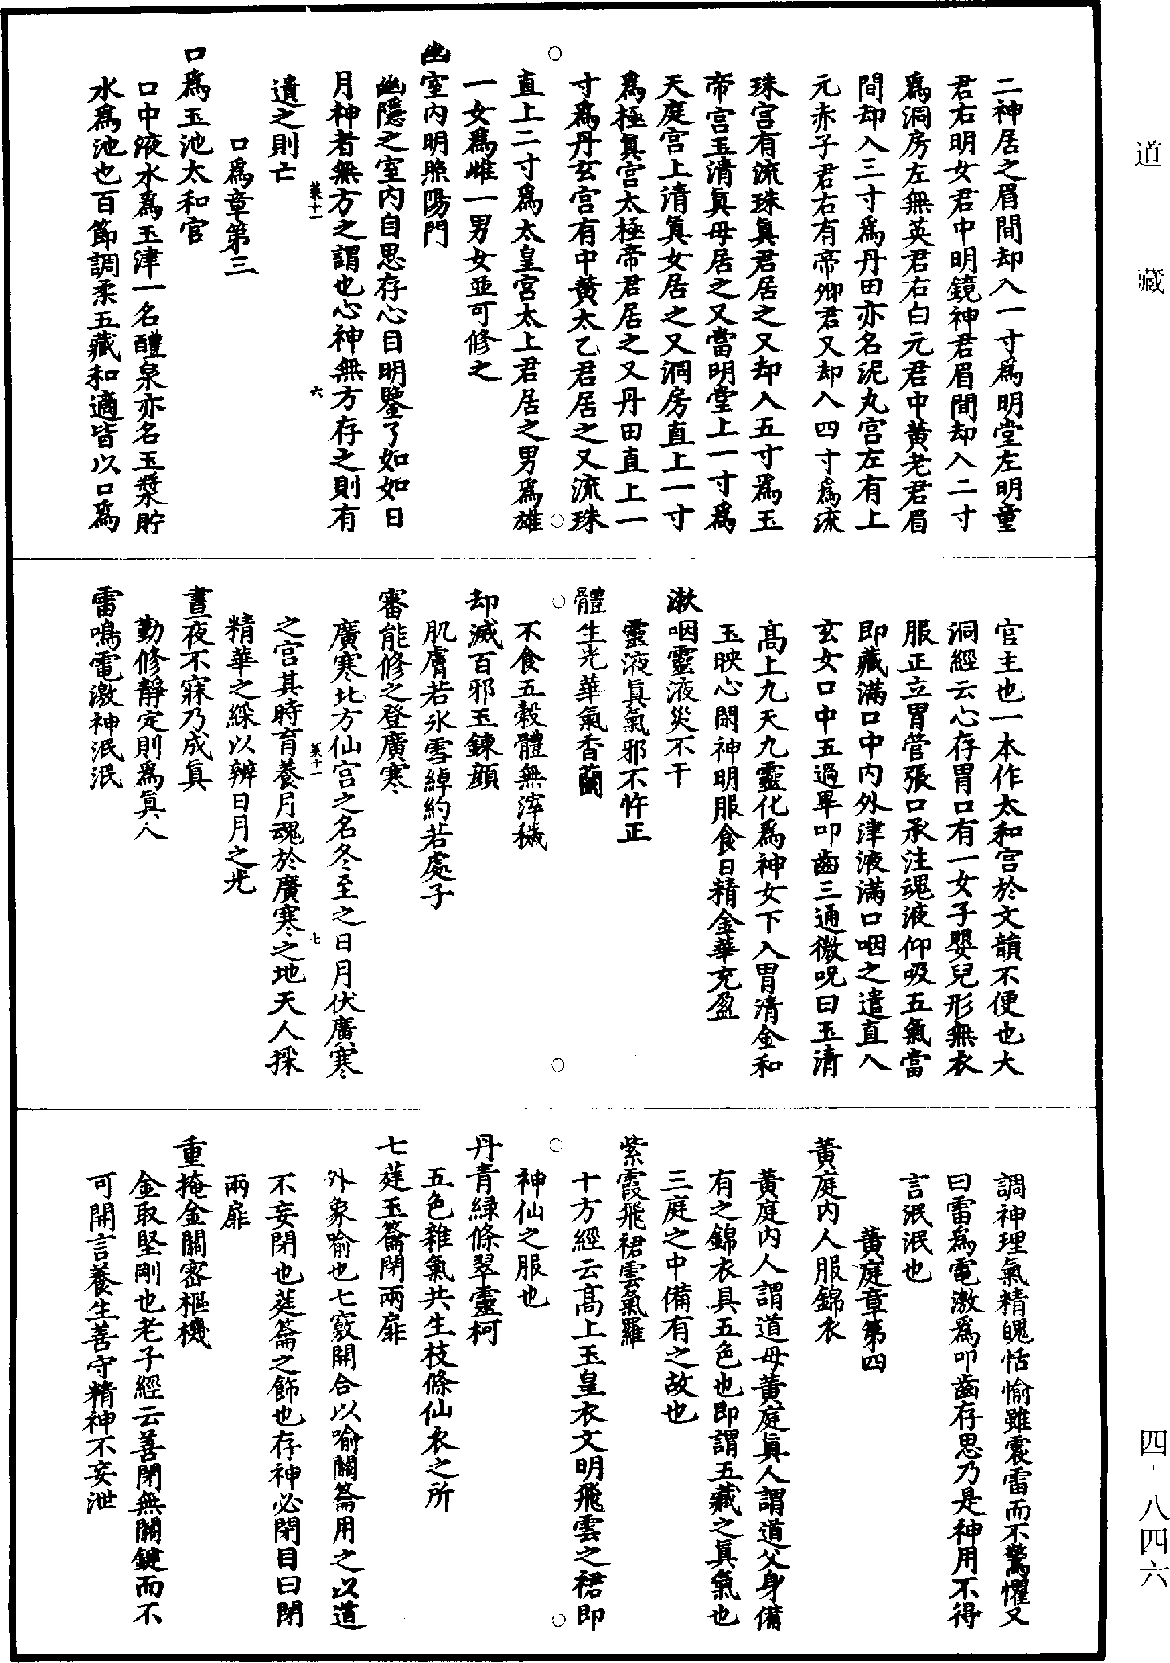 二神居之眉間却入一寸爲明堂左明童
君右明女君中明鏡神君眉間却入二寸
爲洞房左無英君右白元君中黃老君眉
間却入三寸爲丹田亦名泥丸宮左有上
元赤子君右有帝卿君又却入四寸爲流
珠宮有流珠眞君居之又却入五寸爲玉
帝宮玉清眞母居之又當明堂上一寸爲
天庭宮上清眞女居之又洞房直上一寸
爲極眞宮太極帝君居之又丹田直上一
寸爲丹玄宮有中黃太乙君居之又流珠
直上二寸爲太皇宮太上君居之男爲雄
一女爲雌一男女並可修之
幽室內明照陽門
幽隱之室內自思存心目明鑒了如如日
月神者無方之謂也心神無方存之則有
菜十一 六
遺之則亡
口爲章第三
口爲玉池太和官
口中液水爲玉津一名醴泉亦名玉漿貯
水爲池也百節調柔五藏和適皆以口爲
官主也一本作太和宮於文韻不便也大
洞經云心存胃口有一女子嬰兒形無衣
服正立胃管張口承注魂液仰吸五氣當
即藏滿口中內外津液滿口咽之遣直入
玄女口中五過畢叩齒三通微呪曰玉清
高上九天九靈化爲神女下入胃清金和
玉映心開神明服食日精金華充盈
漱咽靈液災不干
靈液眞氣邪不忤正
體生光華氣香蘭
不食五穀體無滓穢
却滅百邪玉鍊顔
肌膚若氷雪綽約若處子
審能修之登廣寒
廣寒北方仙宮之名冬至之日月伏廣寒
菜十一 七
之宮其時育養月魂於廣寒之地天人採
精華之綵以辨日月之光
晝夜不寐乃成眞
勤修靜定則爲眞人
雷鳴電激神泯泯
調神理氣精魄恬愉雖震雷而不驚懼又
曰雷爲電激爲叩齒存思乃是神用不得
言泯泯也
黃庭章第四
黃庭內人服錦衣
黃庭內人謂道母黃庭眞人謂道父身備
有之錦衣具五色也即謂五藏之眞氣也
三庭之中備有之故也
紫霞飛裙雲氣羅
十方經云高上玉皇衣文明飛雲之裙即
神仙之服也
丹青緑條翠靈柯
五色雜氣共生枝條仙衣之所
七莛玉籥閉兩扉
外象喻也七竅開合以喻關籥用之以道
不妄閉也莛籥之飾也存神必閉目曰閉
兩扉
重掩金關密樞機
金取堅剛也老子經云善閉無關鍵而不
可開言養生善守精神不妄泄
道藏
四-八四六